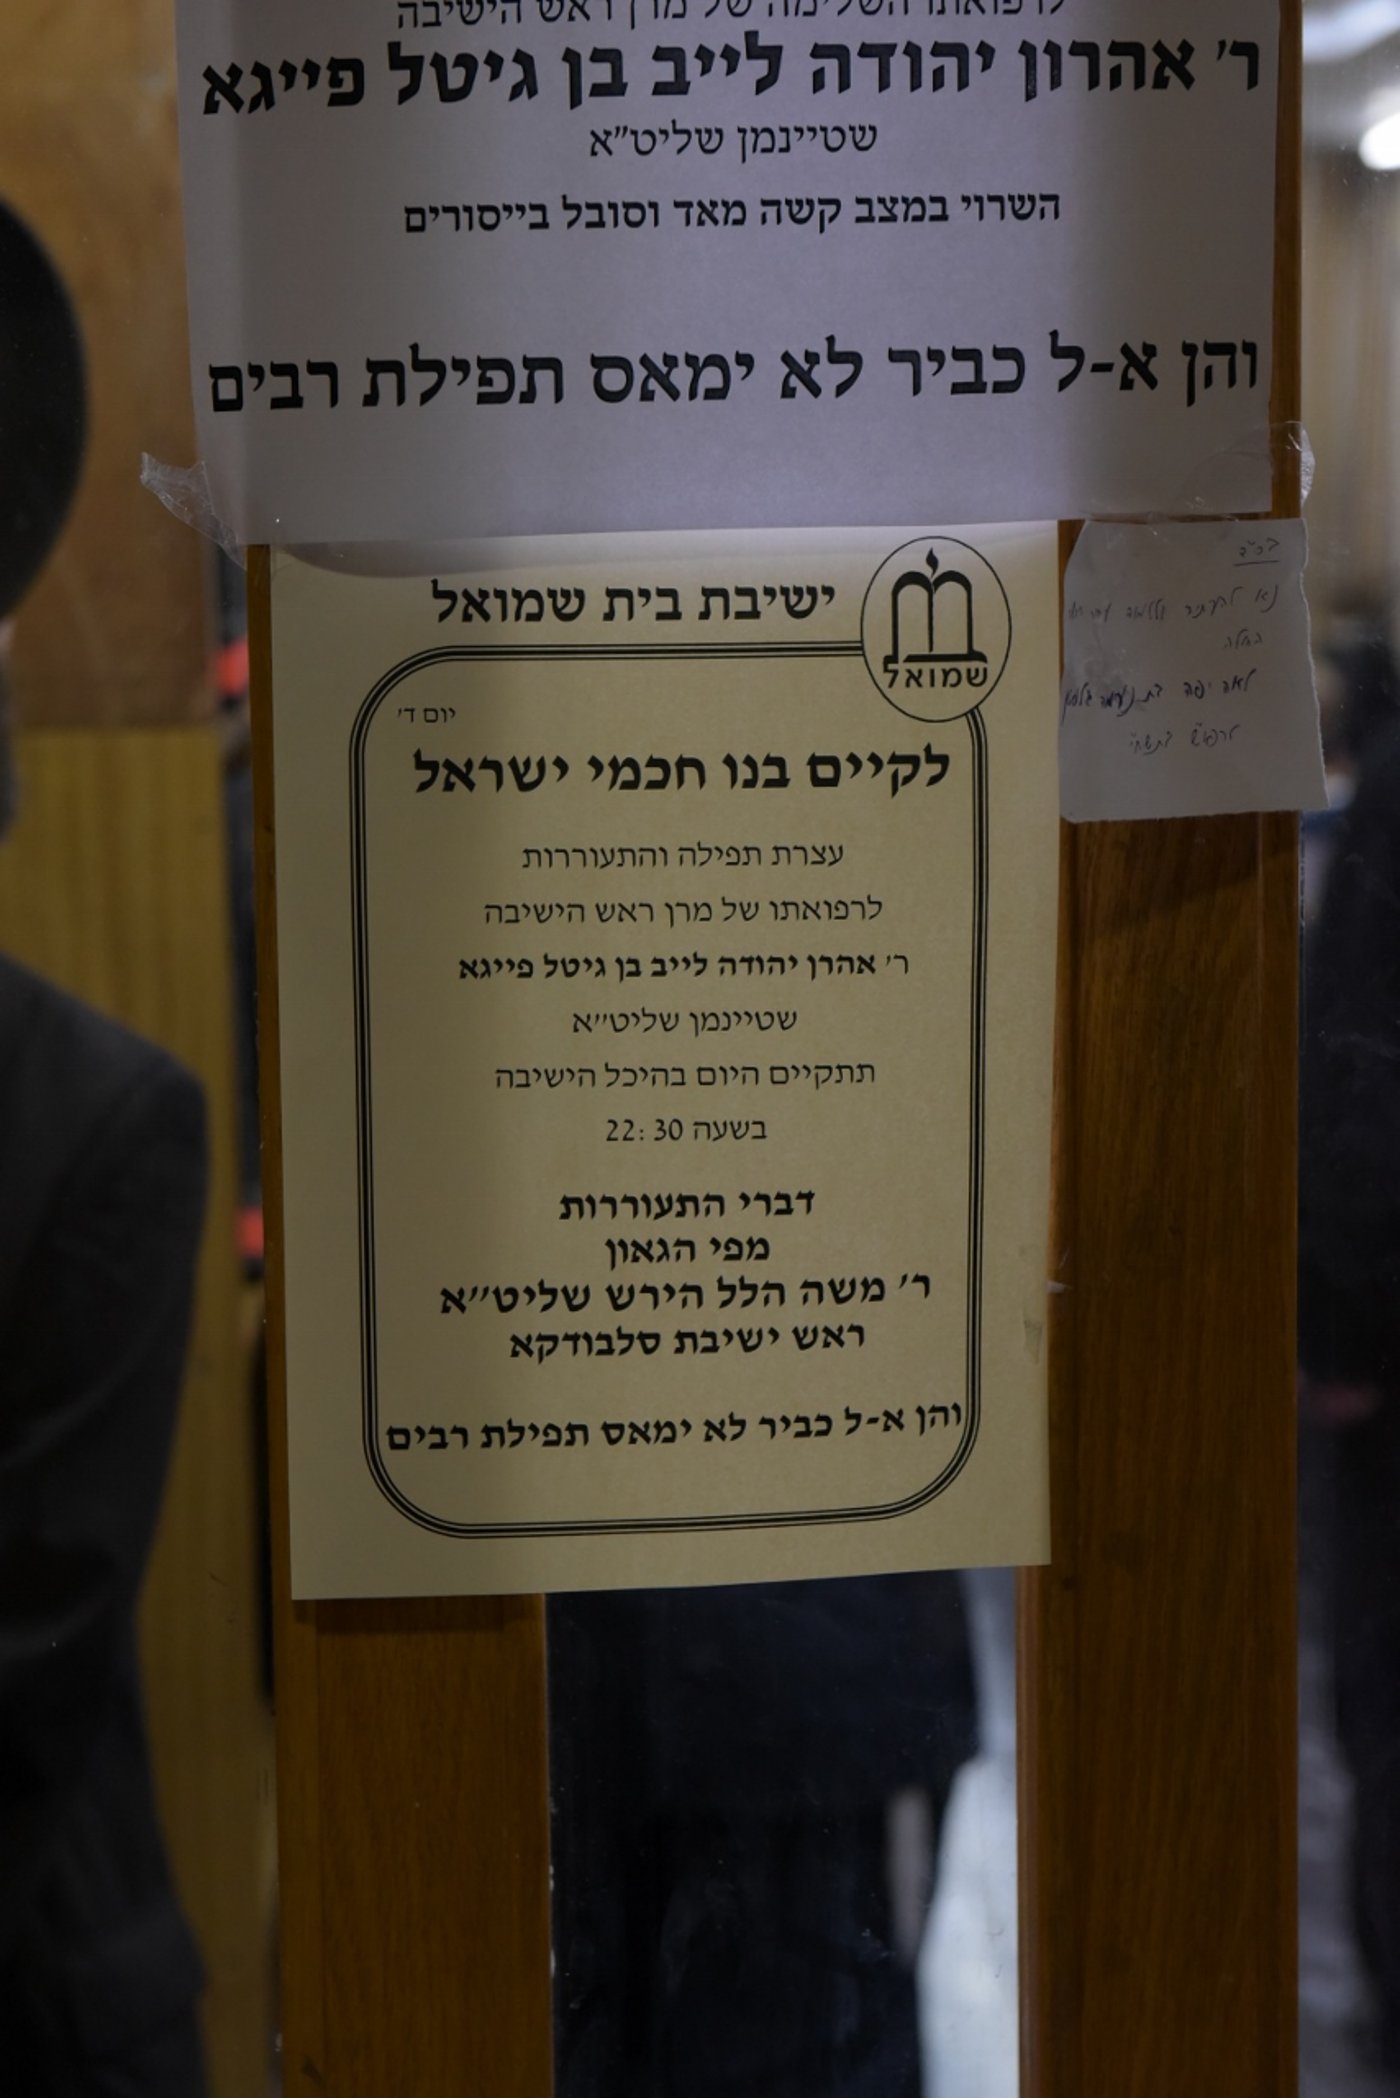 לרפואתו השלימה של מרן ראש הישיבה
ר' אהרון יהודה לייב בן גיטל פייגא
שטיינמן שליט"א
השרוי במצב קשה מאד וסובל בייסורים
והן א-ל כביר לא ימאס תפילת רבים
ישיבת בית שמואל
שמואל
יום ד'
לקיים בנו חכמי ישראל
עצרת תפילה והתעוררות
לרפואתו של מרן ראש הישיבה
ר' אהרן יהודה לייב בן גיטל פייגא
שטיינמן שליט"א
תתקיים היום בהיכל הישיבה
בשעה 22:30
דברי התעוררות
מפי הגאון
ר' משה הלל הירש שליט"א
ראש ישיבת סלבודקא
והן א-ל כביר לא ימאס תפילת רבים
בס"ד
נא להעתיר
החולה
לאה יפה בת נעמה